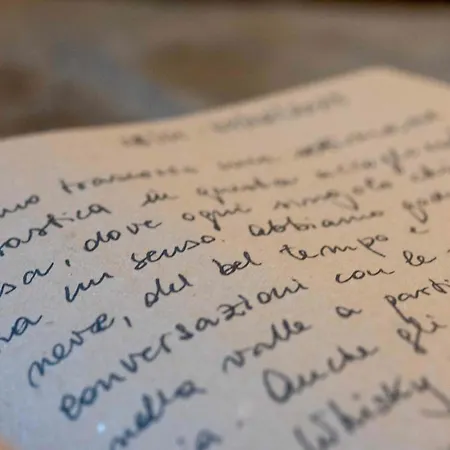 mo trascorso una settimana
tastica in questa accoglien
sa, dove ogni singolo
ha un senso. Abbiamo go
neve, del bel tempo e
conversazioni con le
nella valle a parti
ia. Anche gli
Whisky